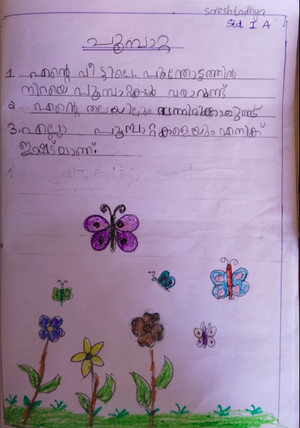 Sreshtadhya
Std I A
പൂമ്പാറ്റ
1. എന്റെ വീട്ടിലെ പൂന്തോട്ടത്തിൽ
നിറയെ പൂമ്പാറ്റകൾ വരാറുണ്ട്
2 എന്റെ തലയിലും വന്നിരിക്കാറുണ്ട്
3. എല്ലാ പൂമ്പാറ്റകളെയും എനിക്ക്
ഇഷ്ടമാണ്.